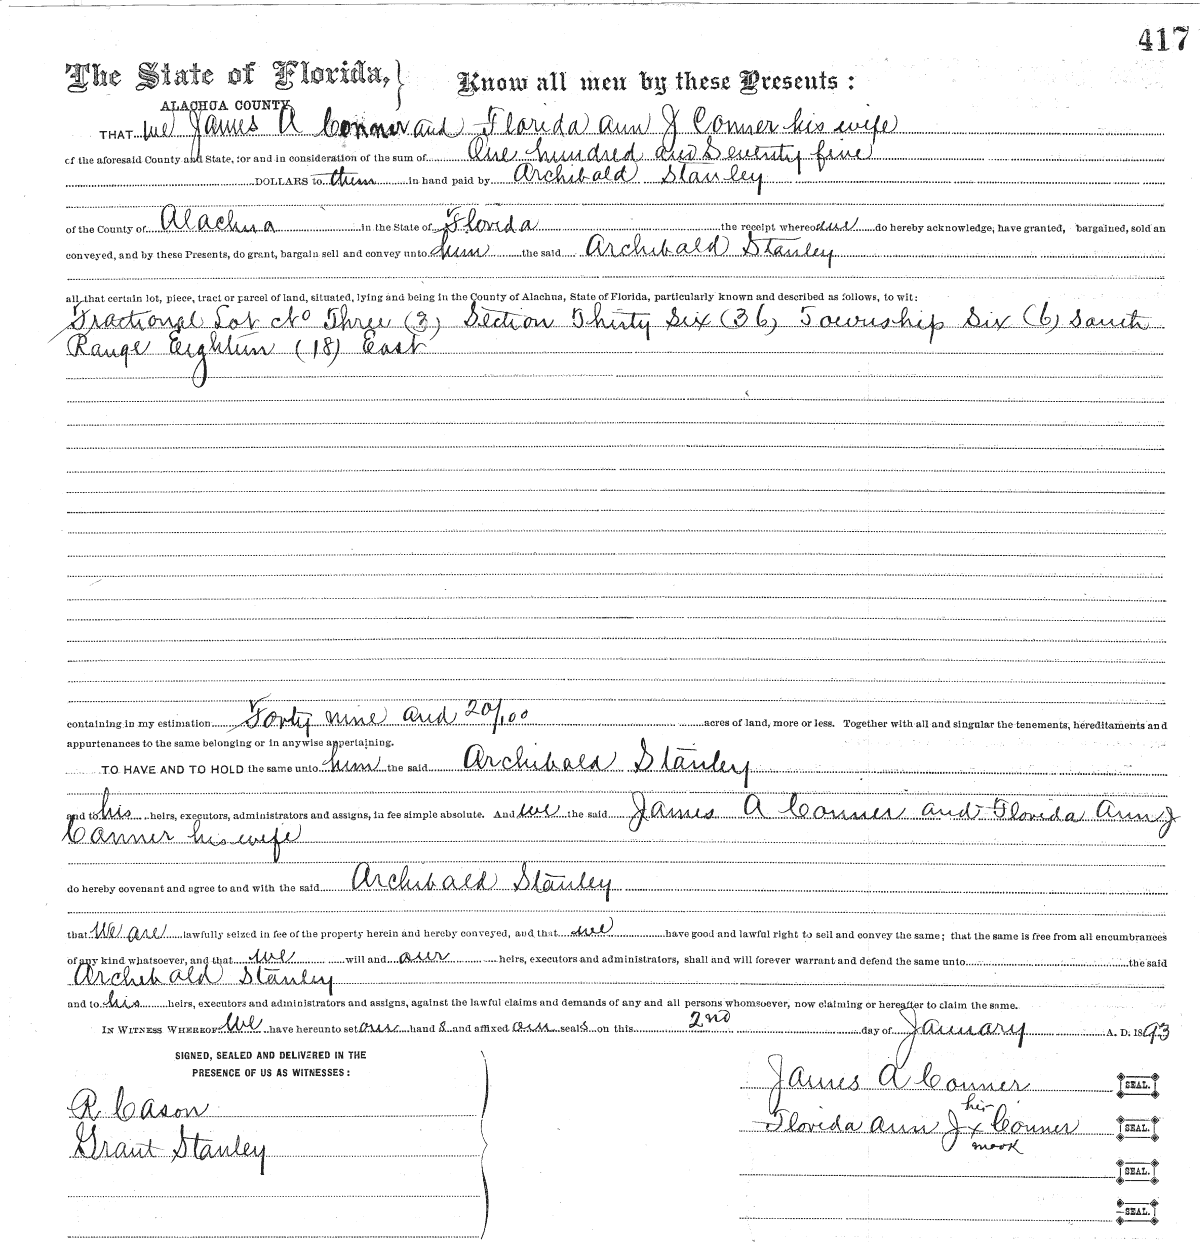 417
The State of Florida, } Know all men by these Presents :
ALACHUA COUNTY
THAT we James A Conner and Florida Ann J Conner his wife
of the aforesaid County and State, for and in consideration of the sum of One hundred and Seventy five
DOLLARS to them in hand paid by Archibald Stanley
of the County of Alachua in the State of Florida the receipt whereof do hereby acknowledge, have granted, bargained, sold an
conveyed, and by these Presents, do grant, bargain sell and convey unto him the said Archibald Stanley
all that certain lot, piece, tract or parcel of land, situated, lying and being in the County of Alachua, State of Florida, particularly known and described as follows, to wit:
Fractional Lot No Three (3) Section Thirty Six (36) Township Six (6) South
Range Eighteen (18) East
containing in my estimation Forty nine and 20/100 acres of land, more or less. Together with all and singular the tenements, hereditaments and
appurtenances to the same belonging or in anywise appertaining.
TO HAVE AND TO HOLD the same unto him the said Archibald Stanley
and to his heirs, executors, administrators and assigns, in fee simple absolute. And we the said James A Conner and Florida Ann J
Conner his wife
do hereby covenant and agree to and with the said Archibald Stanley
that We are lawfully seized in fee of the property herein and hereby conveyed, and that we have good and lawful right to sell and convey the same; that the same is free from all encumbrances
of any kind whatsoever, and that we will and our heirs, executors and administrators, shall and will forever warrant and defend the same unto the said
Archibald Stanley
and to his heirs, executors and administrators and assigns, against the lawful claims and demands of any and all persons whomsoever, now claiming or hereafter to claim the same.
IN WITNESS WHEREOF We have hereunto set our hand s and affixed our seal s on this 2nd day of January A. D. 1893
SIGNED, SEALED AND DELIVERED IN THE
PRESENCE OF US AS WITNESSES :
R Cason
Grant Stanley
James A Conner SEAL.
her
Florida Ann J x Conner SEAL.
mark
SEAL.
SEAL.